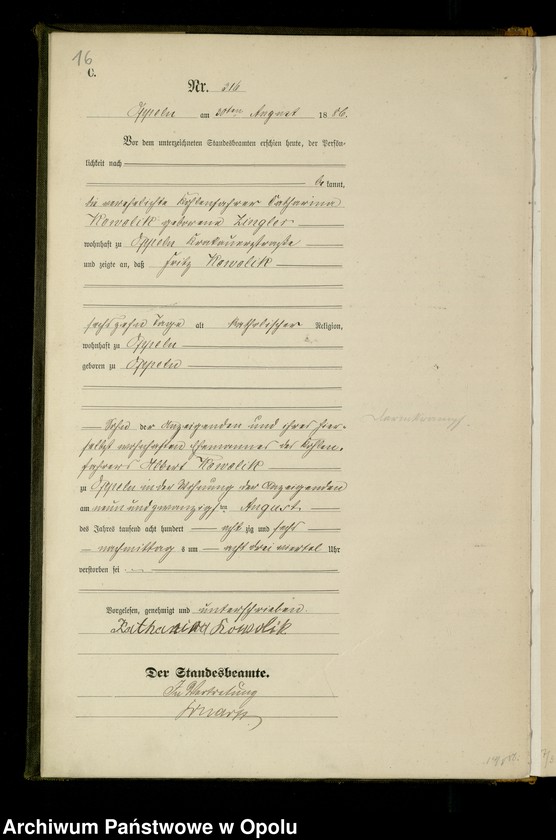 16
C.
Nr. 316
Oppeln am 30ten August 1886.
Vor dem unterzeichneten Standesbeamten erschien heute, der Persön-
lichkeit nach
bekannt,
die verehelichte Kohlenfahrer Catharina
Kowolik geborene Zingler
wohnhaft zu Oppeln Krakauerstraße
und zeigte an, daß Fritz Kowolik
sechszehn Tage alt katholischer Religion,
wohnhaft zu Oppeln
geboren zu Oppeln
Sohn der Anzeigenden und ihres hier-
selbst wohnhaften Ehemannes des Kohlen-
fahrers Albert Kowolik
zu Oppeln in der Wohnung der Anzeigenden
am neunundzwanzigsten August
des Jahres tausend acht hundert achtzig und sechs
nachmittags um acht drei viertel Uhr
verstorben sei
Vorgelesen, genehmigt und unterschrieben
Katharina Kowolik
Der Standesbeamte.
In Vertretung
Archiwum Państwowe w Opolu